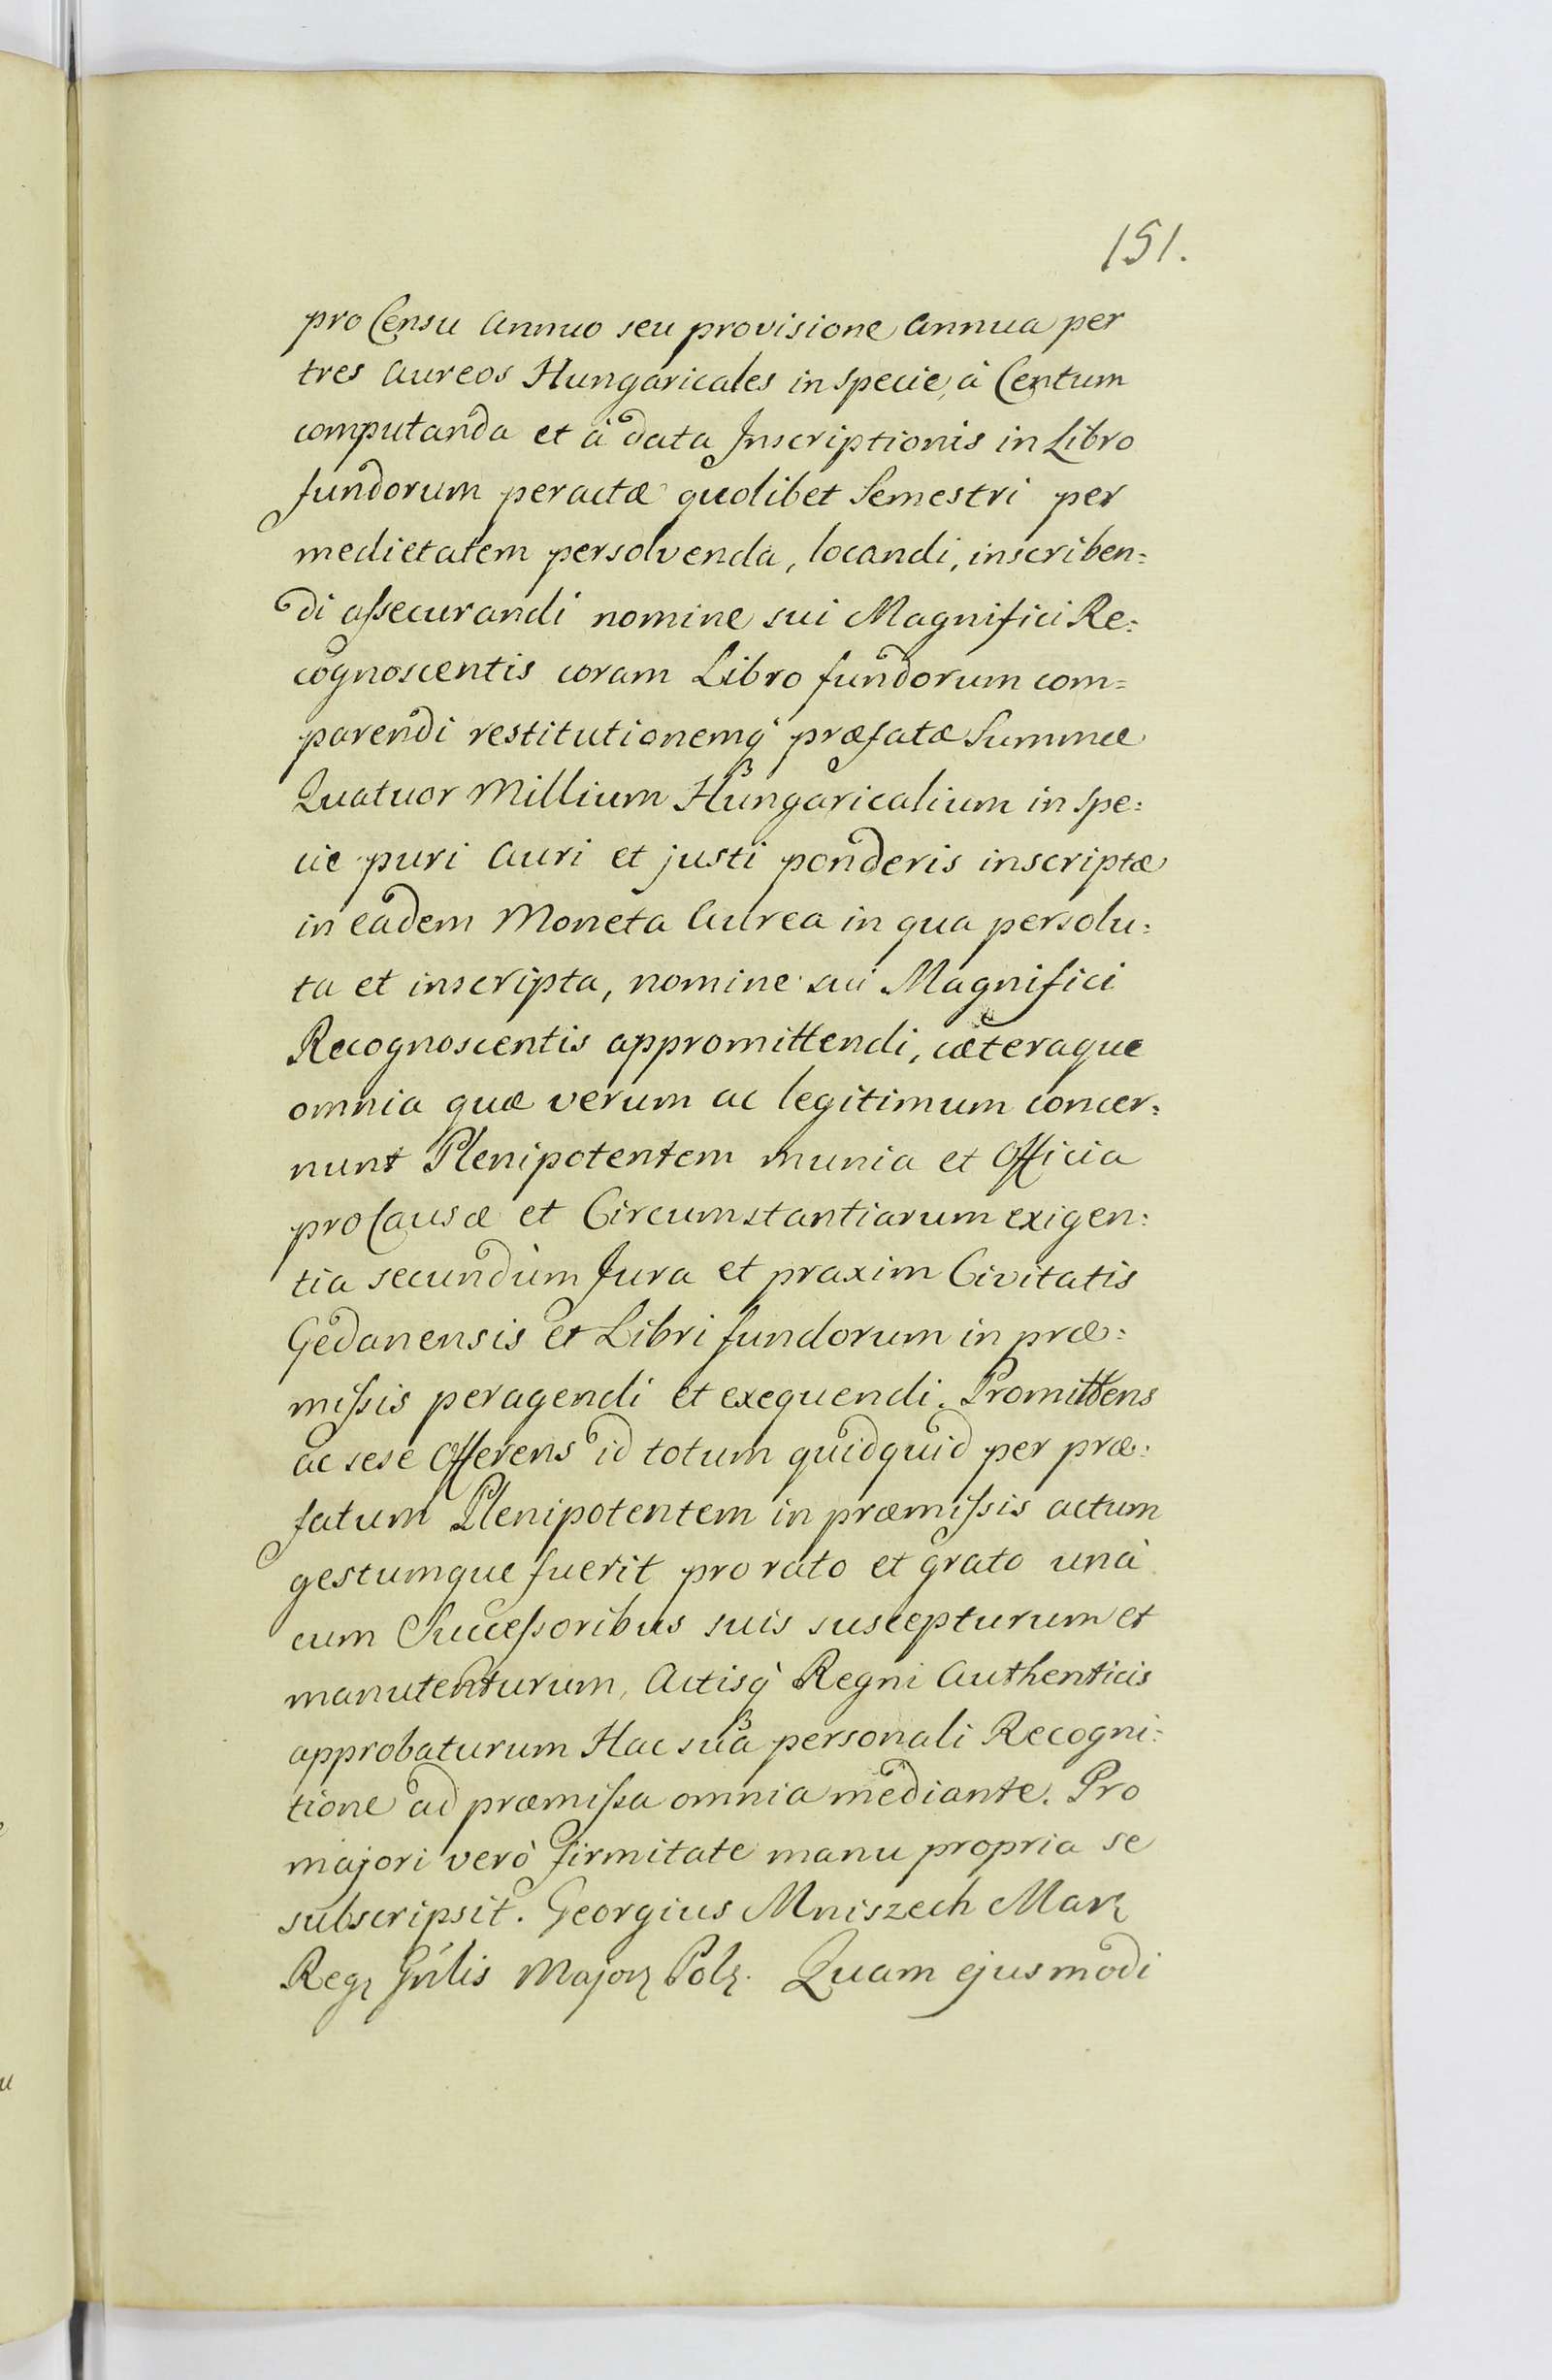 151.
pro Censu Annuo seu provisione Annua per
tres Aureos Hungaricales in specie, à Centum
computanda et à data Inscriptionis in Libro
fundorum peractæ quolibet Semestri per
medietatem persolvenda, locandi, inscriben=
di aſsecurandi nomine sui Magnifici Re=
cognoscentis coram Libro fundorum com=
parendi restitutionemq́ præfatæ Summæ
Quatuor Millium Hungaricalium in spe=
cie puri Auri et justi ponderis inscriptæ
in eadem Moneta Aurea in qua persolu=
ta et inscripta, nomine sui Magnifici
Recognoscentis appromittendi, cæteraque
omnia quæ verum ac legitimum concer=
nunt Plenipotentem munia et Officia
pro Causæ et Circumstantiarum exigen=
tia secundùm Jura et praxim Civitatis
Gedanensis et Libri fundorum in præ=
miſsis peragendi et exequendi. Promittens
ac sese Offerens id totum quidquid per præ=
fatum Plenipotentem in præmiſsis actum
gestumque fuerit pro rato et grato unà
cum Succeſsoribus suis suscepturum et
manutenturum, Actisq́ Regni Authenticis
approbaturum Hac sua personali Recogni=
tione ad præmiſsa omnia mediante. Pro
majori verò firmitate manu propria se
subscripsit. Georgius Mniszech Marꝝ
Regꝝ Gńlis Majorꝝ Polꝝ. Quam ejusmodi